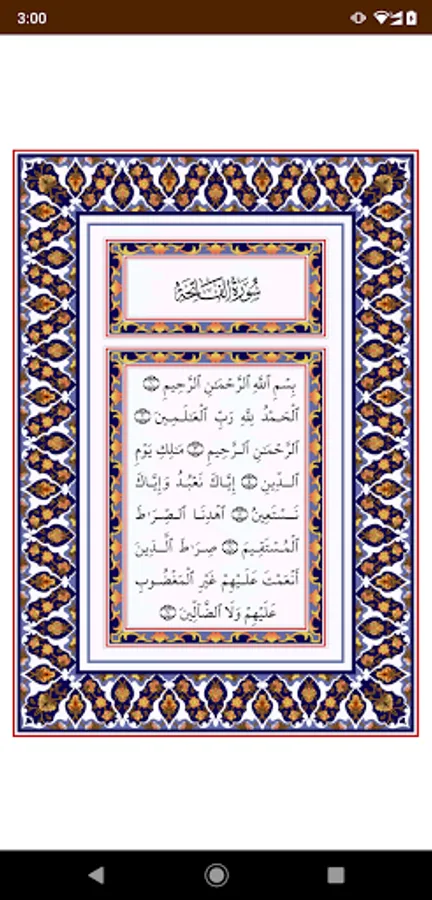 3:00
سُورَةُ الْفَاتِحَةِ
بِسْمِ ٱللَّهِ ٱلرَّحْمَـٰنِ ٱلرَّحِيمِ ۝١
ٱلْحَمْدُ لِلَّهِ رَبِّ ٱلْعَـٰلَمِينَ ۝٢
ٱلرَّحْمَـٰنِ ٱلرَّحِيمِ ۝٣ مَـٰلِكِ يَوْمِ
ٱلدِّينِ ۝٤ إِيَّاكَ نَعْبُدُ وَإِيَّاكَ
نَسْتَعِينُ ۝٥ ٱهْدِنَا ٱلصِّرَٰطَ
ٱلْمُسْتَقِيمَ ۝٦ صِرَٰطَ ٱلَّذِينَ
أَنْعَمْتَ عَلَيْهِمْ غَيْرِ ٱلْمَغْضُوبِ
عَلَيْهِمْ وَلَا ٱلضَّآلِّينَ ۝٧